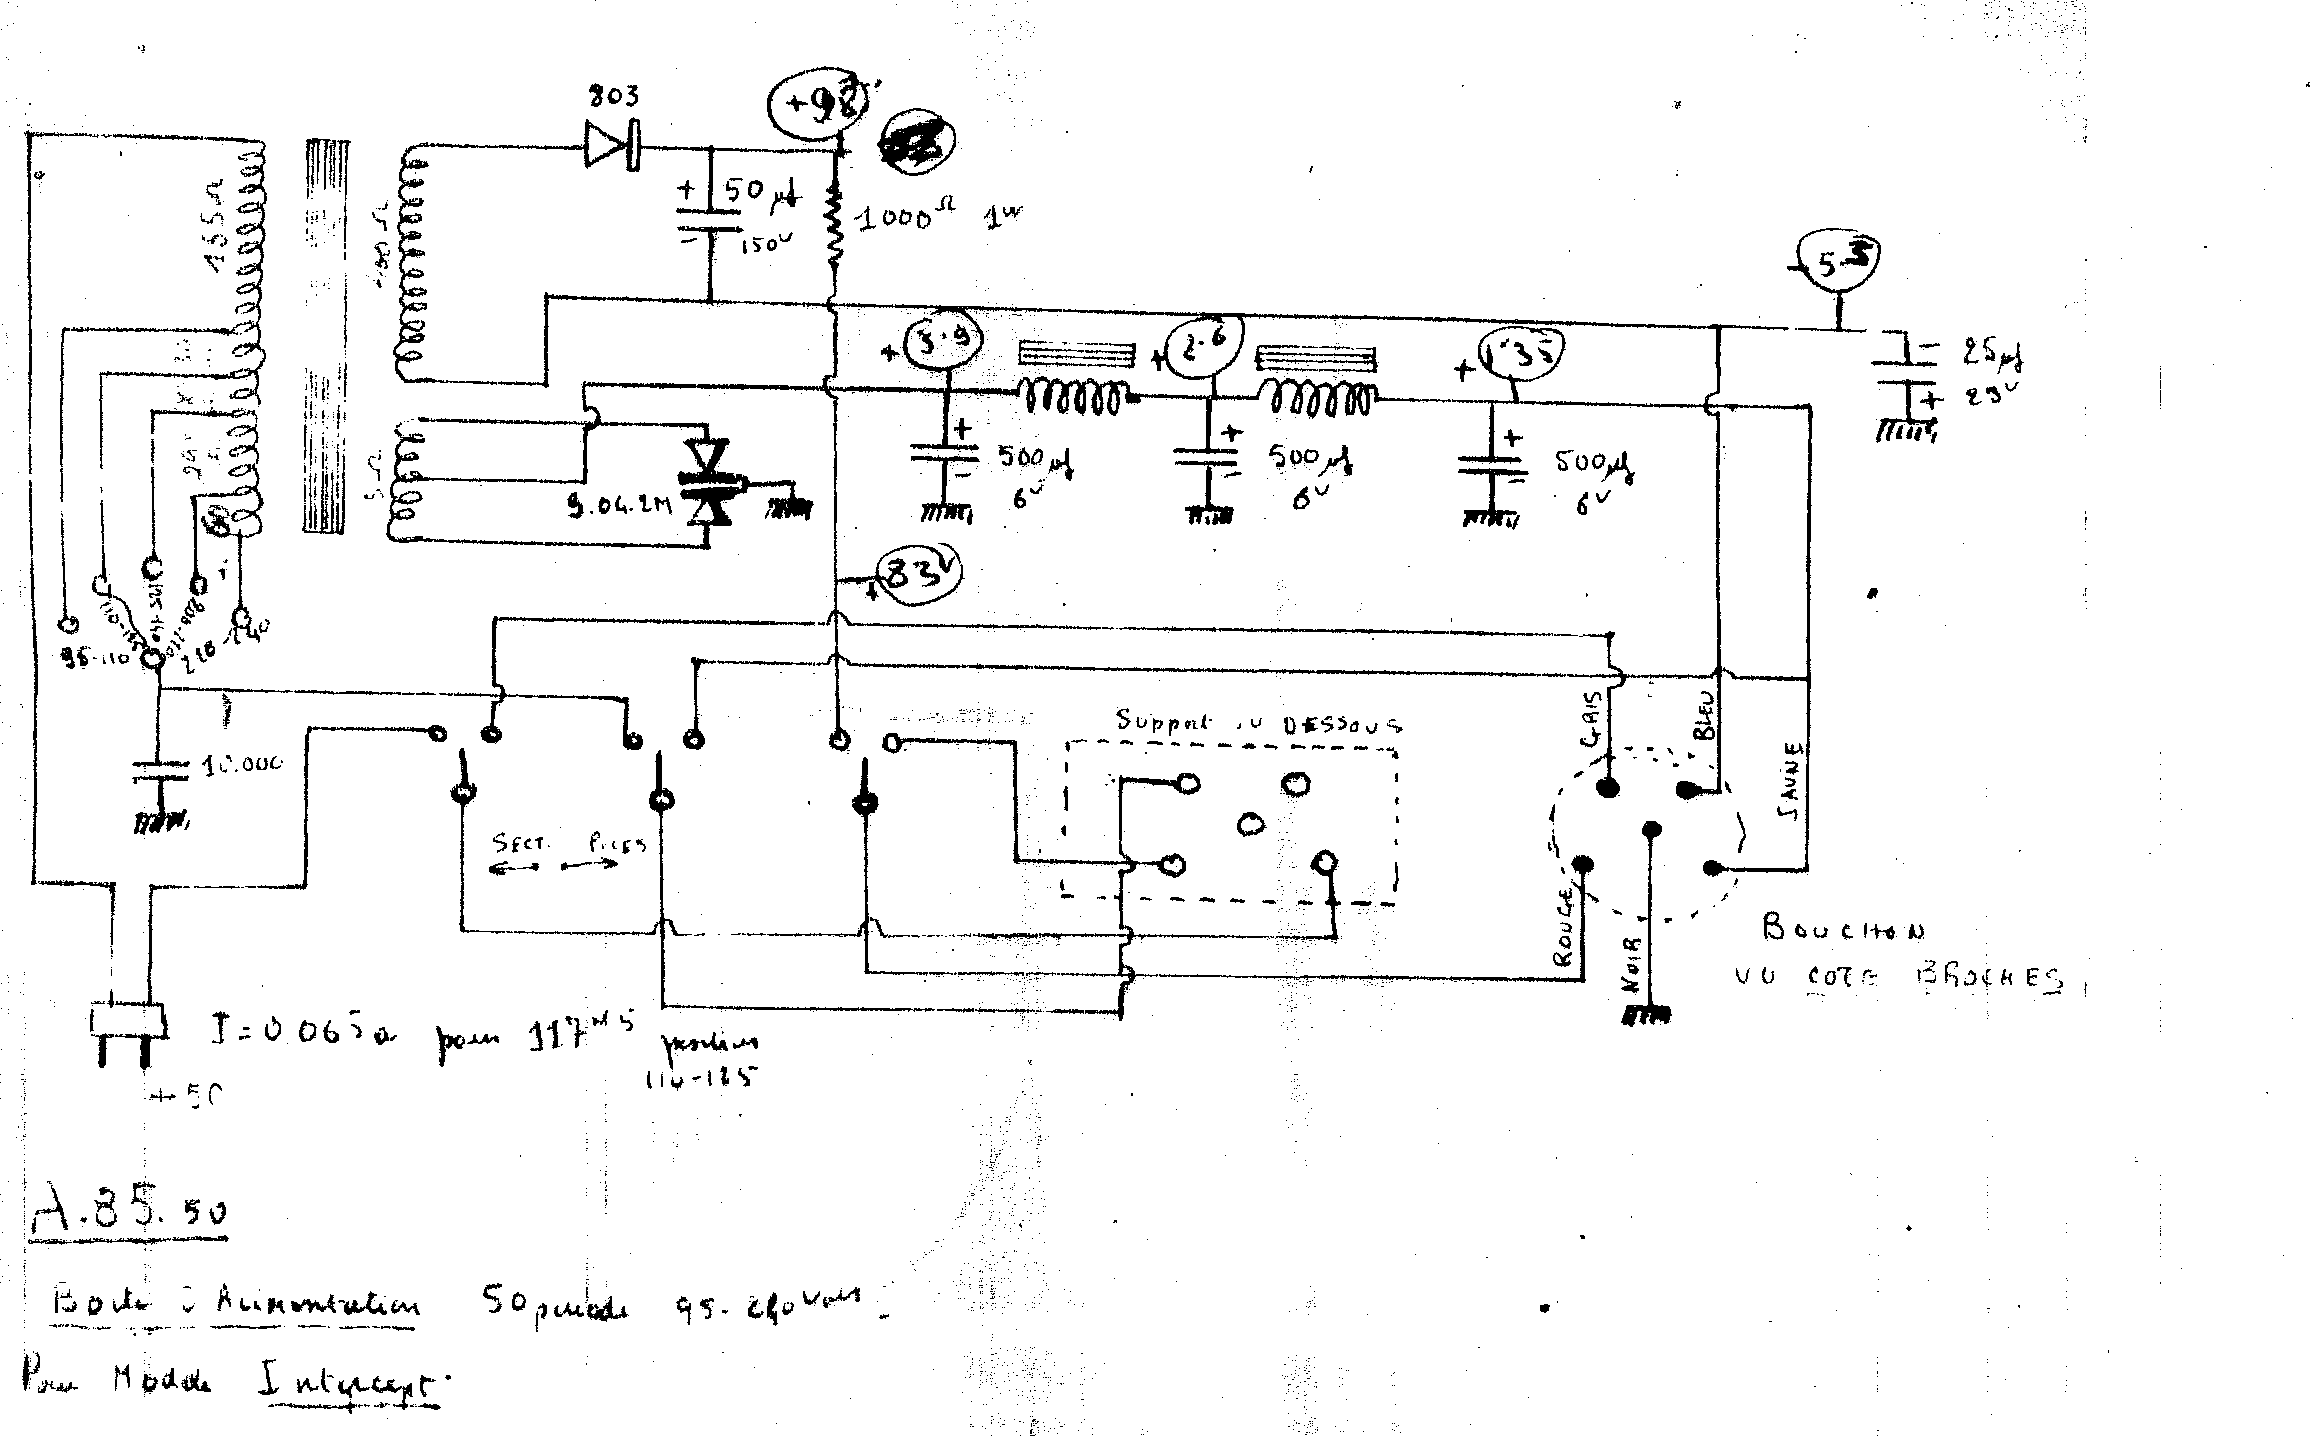 803
+98
+ 50 µf
150V
1000Ω 1W
155Ω
- 5.5
+ 3.9
+ 2.6
+ 1.35
- 25µf
+ 25V
5Ω
9.04.2M
+ 500µf
- 6V
+ 500µf
- 6V
+ 500µf
- 6V
+ 83V
95-110
10.000
SECT. PILES
Support vu DESSOUS
GRIS
BLEU
JAUNE
ROUGE
NOIR
BOUCHON
VU COTE BROCHES
I=0 065a pour 117V5 position
110-125
+50
A.85.50
Boite d'Alimentation 50 periode 95-240 Volts
Pour Modele Intercept.